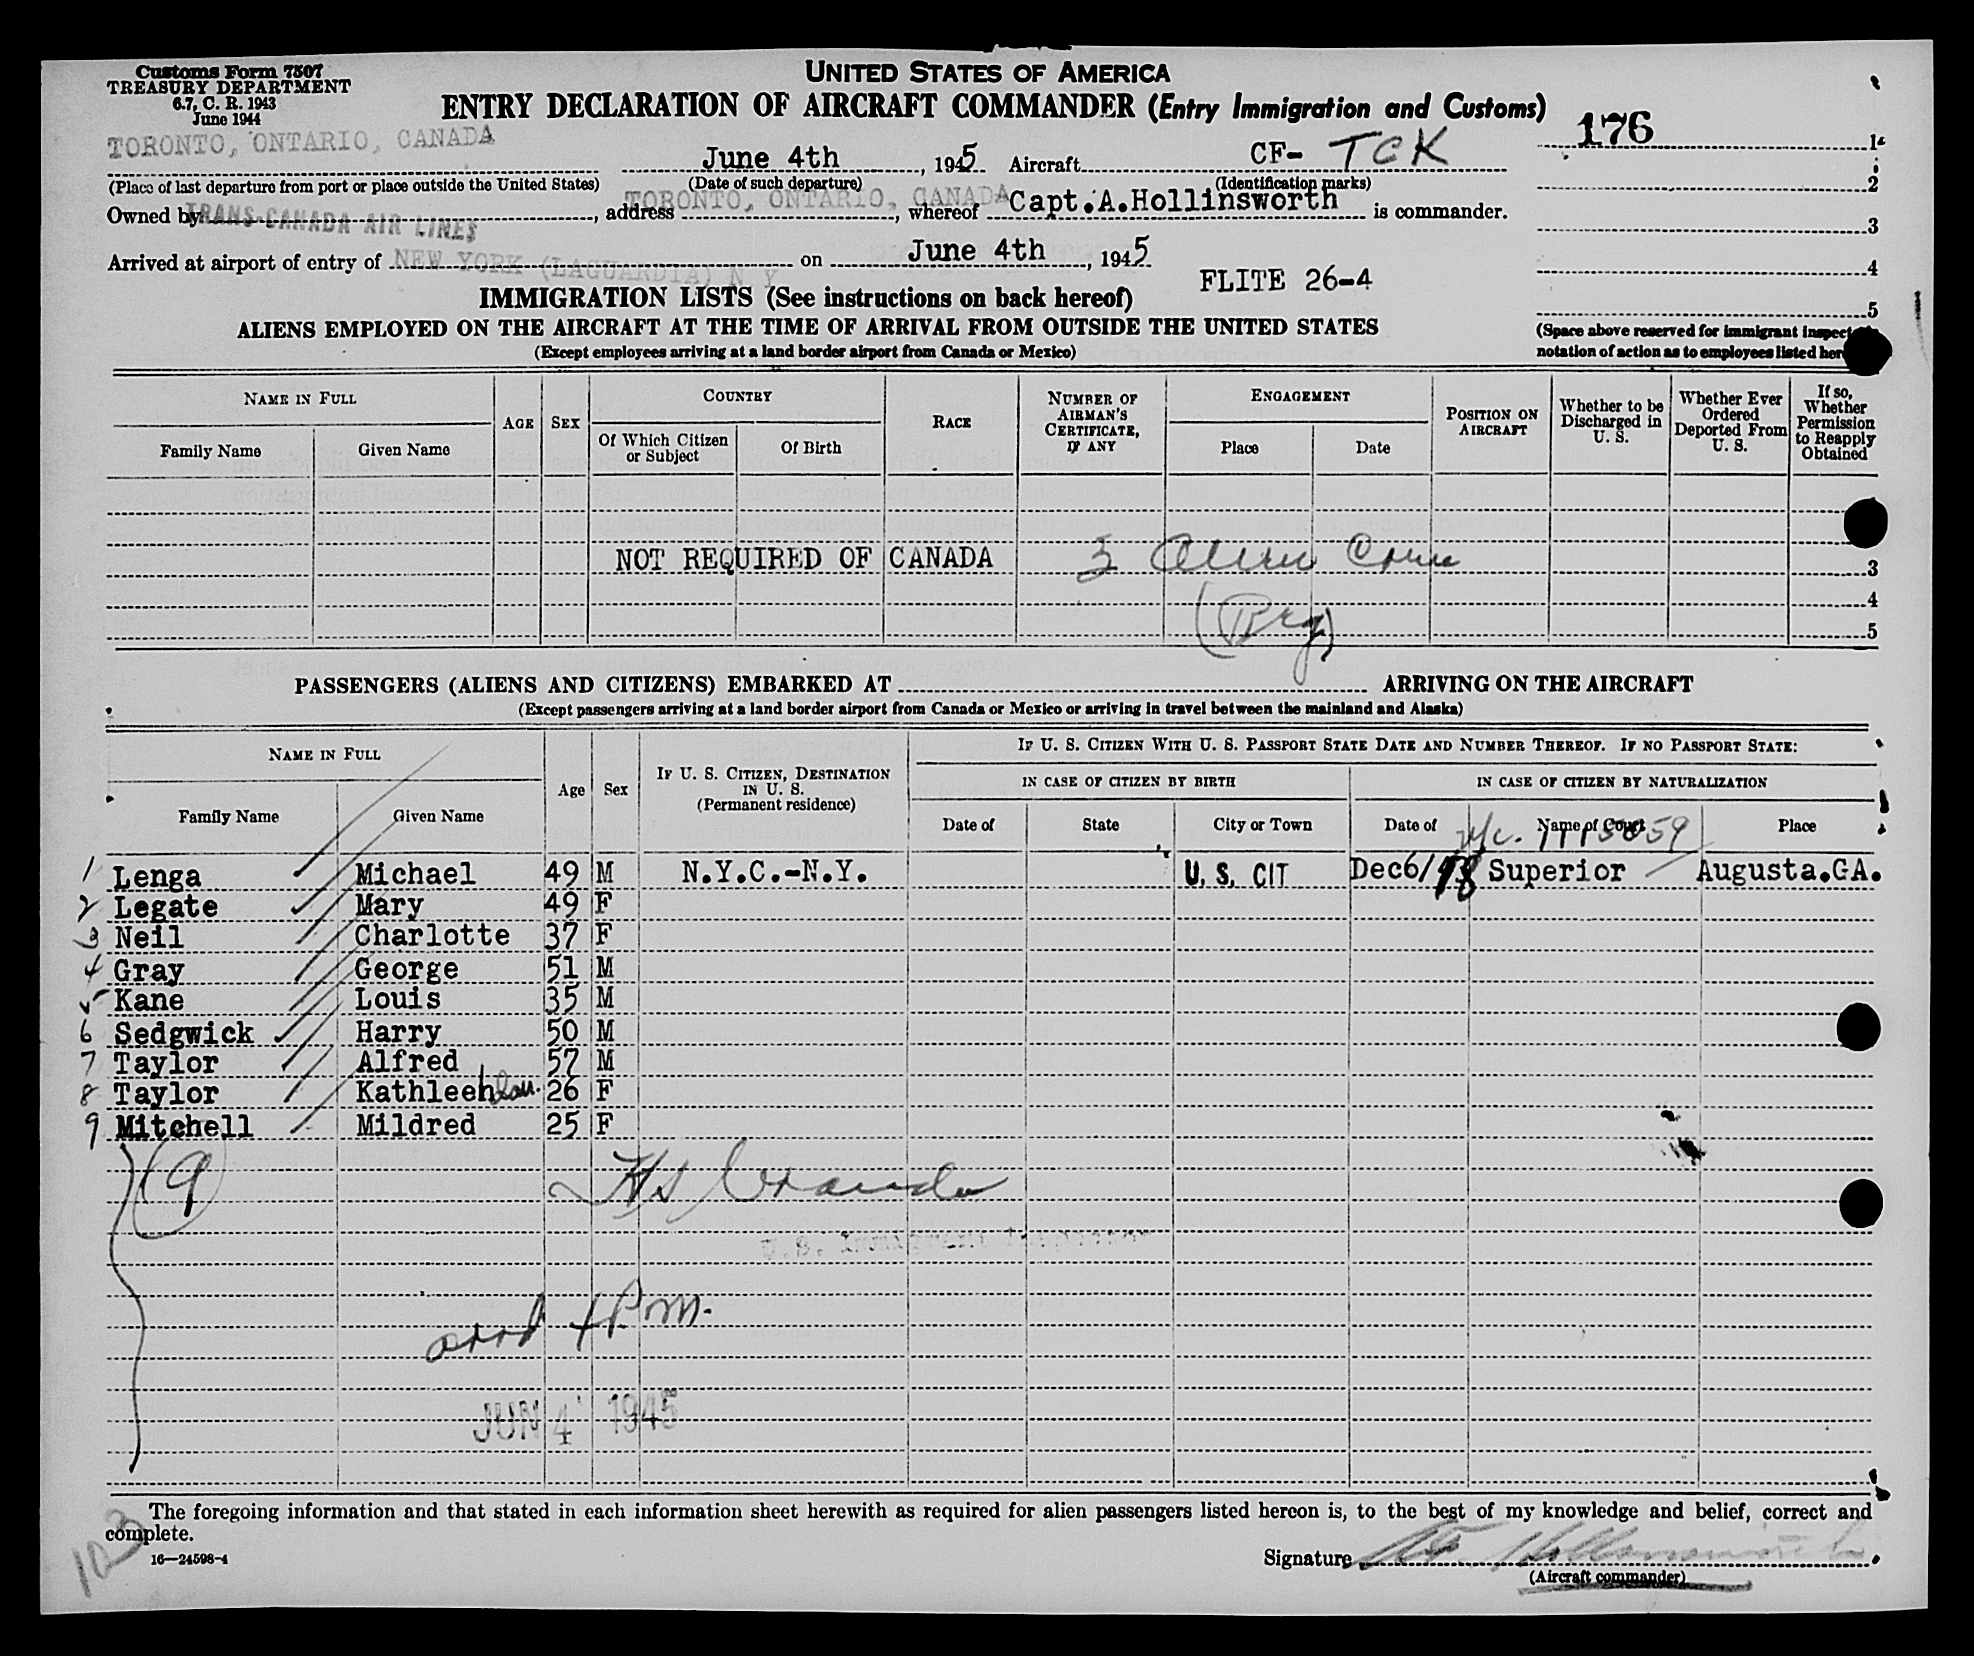 Customs Form 7507
TREASURY DEPARTMENT
6.7, C. R. 1943
June 1944
UNITED STATES OF AMERICA
ENTRY DECLARATION OF AIRCRAFT COMMANDER (Entry Immigration and Customs)
176
TORONTO, ONTARIO, CANADA
June 4th, 1945 Aircraft CF- TCK
1
(Place of last departure from port or place outside the United States) (Date of such departure) (Identification marks)
2
Owned by TRANS-CANADA AIR LINES, address TORONTO, ONTARIO, CANADA, whereof Capt. A. Hollinsworth is commander.
3
Arrived at airport of entry of NEW YORK (LAGUARDIA) N Y on June 4th, 1945
4
FLITE 26-4
5
IMMIGRATION LISTS (See instructions on back hereof)
ALIENS EMPLOYED ON THE AIRCRAFT AT THE TIME OF ARRIVAL FROM OUTSIDE THE UNITED STATES
(Except employees arriving at a land border airport from Canada or Mexico)
(Space above reserved for immigrant inspect
notation of action as to employees listed her
NAME IN FULL
Family Name Given Name
AGE SEX
COUNTRY
Of Which Citizen or Subject
Of Birth
RACE
NUMBER OF AIRMAN'S CERTIFICATE, IF ANY
ENGAGEMENT
Place Date
POSITION ON AIRCRAFT
Whether to be Discharged in U. S.
Whether Ever Ordered Deported From U. S.
If so, Whether Permission to Reapply Obtained
NOT REQUIRED OF CANADA 3 Alien Crew
3
4
5
PASSENGERS (ALIENS AND CITIZENS) EMBARKED AT ARRIVING ON THE AIRCRAFT
(Except passengers arriving at a land border airport from Canada or Mexico or arriving in travel between the mainland and Alaska)
NAME IN FULL
Family Name Given Name
Age Sex
IF U. S. CITIZEN, DESTINATION IN U. S.
(Permanent residence)
IF U. S. CITIZEN WITH U. S. PASSPORT STATE DATE AND NUMBER THEREOF. IF NO PASSPORT STATE:
IN CASE OF CITIZEN BY BIRTH IN CASE OF CITIZEN BY NATURALIZATION
Date of State City or Town Date of Name of Court Place
1 Lenga Michael 49 M N.Y.C.-N.Y. U.S. CIT Dec6/18 Superior Augusta.GA.
2 Legate Mary 49 F
3 Neil Charlotte 37 F
4 Gray George 51 M
5 Kane Louis 35 M
6 Sedgwick Harry 50 M
7 Taylor Alfred 57 M
8 Taylor Kathleen 26 F
9 Mitchell Mildred 25 F
9
U.S. Immigrant Inspector
arrd 4 P.M.
JUN 4 1945
The foregoing information and that stated in each information sheet herewith as required for alien passengers listed hereon is, to the best of my knowledge and belief, correct and
complete.
103
16—24598-4
Signature
(Aircraft commander)